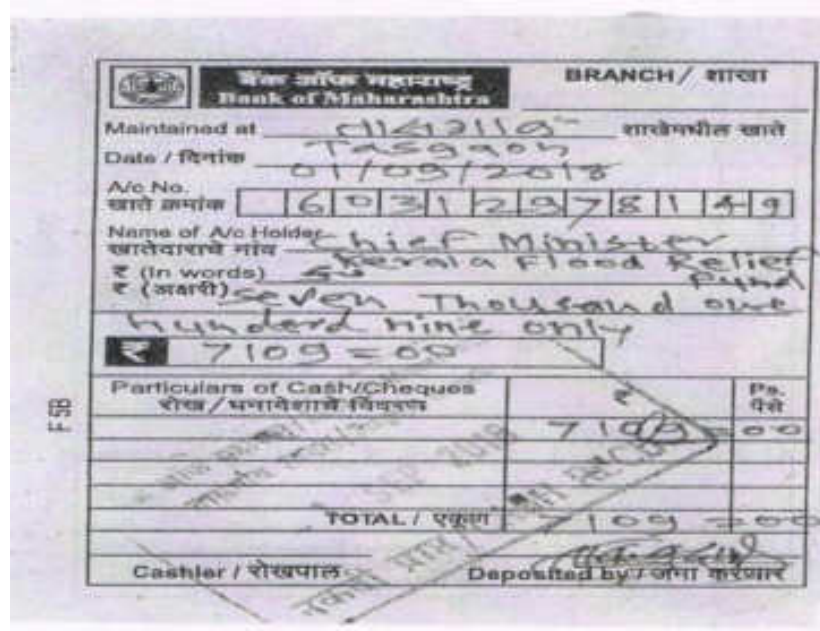 बैंक ऑफ महाराष्ट्र
Bank of Maharashtra
BRANCH / शाखा
Maintained at तासगाव शाखेमधील खाते
Tasgaon
Date / दिनांक 01/09/2018
A/c No.
खाते क्रमांक 60312978149
Name of A/c Holder Chief Minister
खातेदाराचे नांव Kerala Flood Relief
₹ (In words) Fund
₹ (अक्षरी) Seven Thousand one
hunderd nine only
₹ 7109=00
Particulars of Cash/Cheques ₹ Ps.
रोख/धनादेशाचे विवरण पैसे
7109=00
SEP 2018
TOTAL / एकूण 7109=00
Cashier / रोखपाल Deposited by / जमा करणार
FSB